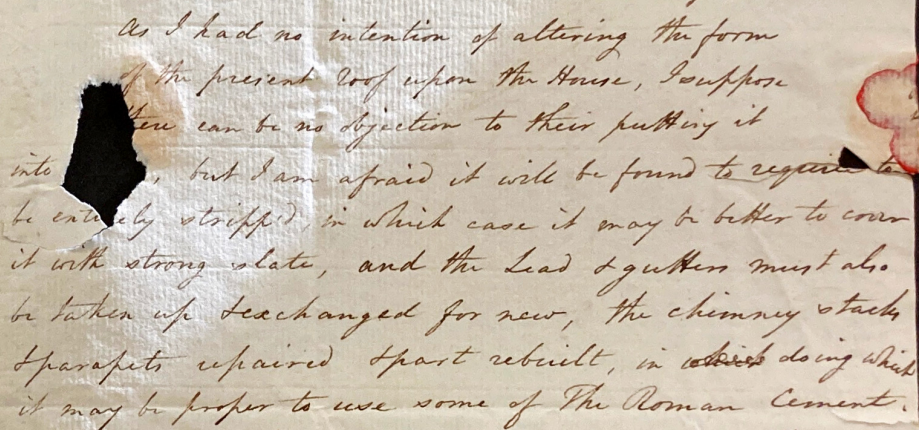 As I had no intention of altering the form
of the present roof upon the House, I suppose
there can be no objection to their putting it
into , but I am afraid it will be found to require to
be entirely stripp'd, in which case it may be better to cover
it with strong slate, and the Lead & gutters must also
be taken up & exchanged for new, the chimney stacks
& parapets repaired & part rebuilt, in which doing which
it may be proper to use some of The Roman Cement.